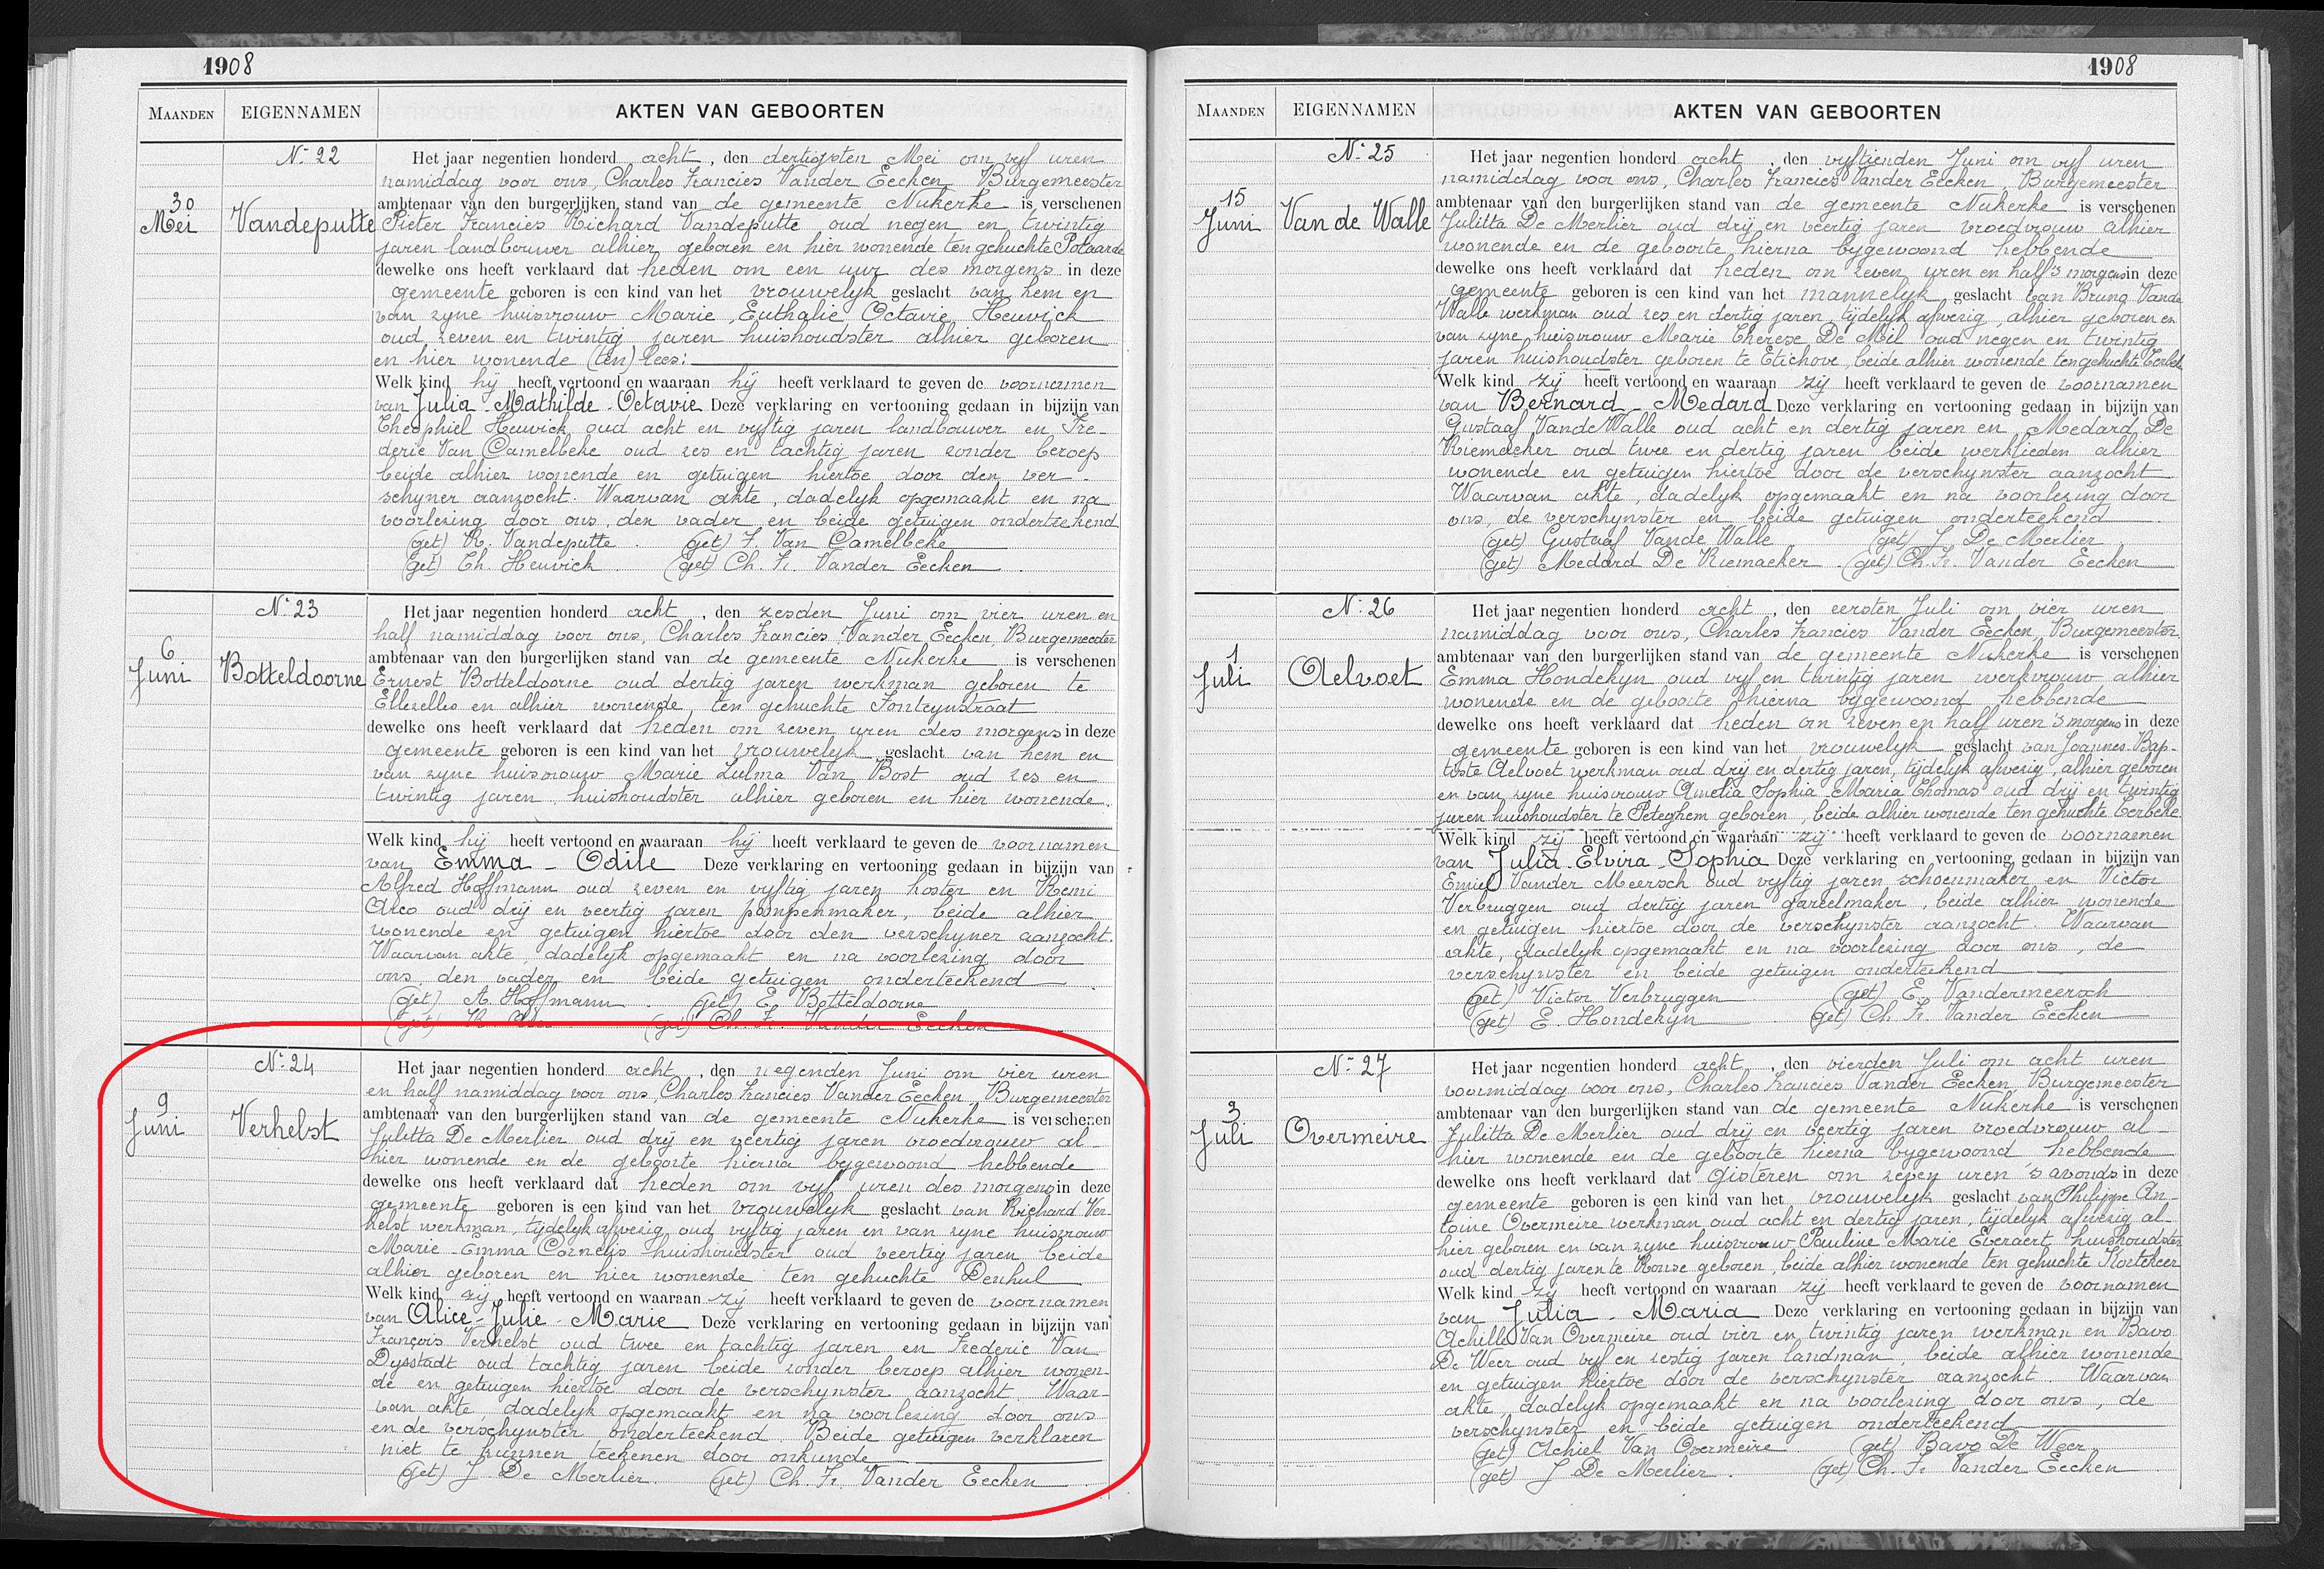 1908
MAANDEN EIGENNAMEN AKTEN VAN GEBOORTEN
N° 22
30 Mei
Vandeputte
Het jaar negentien honderd acht, den dertigsten Mei om vyf uren
namiddag voor ons, Charles Francies Vander Eecken, Burgemeester
ambtenaar van den burgerlijken stand van de gemeente Nukerke is verschenen
Pieter Francies Richard Vandeputte oud negen en twintig
jaren landbouwer alhier geboren en hier wonende ten gehuchte Potaarde
dewelke ons heeft verklaard dat heden om een uur des morgens in deze
gemeente geboren is een kind van het vrouwelyk geslacht van hem en
van zyne huisvrouw Marie Euthalie Octavie Heuvick
oud zeven en twintig jaren huishoudster alhier geboren
en hier wonende (ten) lees:
Welk kind hij heeft vertoond en waaraan hij heeft verklaard te geven de voornamen
van Julia - Mathilde - Octavie Deze verklaring en vertooning gedaan in bijzijn van
Theophiel Heuvick oud acht en vyftig jaren landbouwer en Fre-
deric Van Camelbeke oud zes en tachtig jaren zonder beroep
beide alhier wonende en getuigen hiertoe door den ver-
schyner aanzocht. Waarvan akte, dadelyk opgemaakt en na
voorlezing door ons, den vader en beide getuigen onderteekend
(get) R. Vandeputte. (get) F. Van Camelbeke
(get) Th. Heuvick. (get) Ch. Fr. Vander Eecken.
N° 23
6 Juni
Botteldoorne
Het jaar negentien honderd acht, den zesden Juni om vier uren en
half namiddag voor ons, Charles Francies Vander Eecken, Burgemeester
ambtenaar van den burgerlijken stand van de gemeente Nukerke is verschenen
Ernest Botteldoorne oud dertig jaren werkman geboren te
Ellezelles en alhier wonende, ten gehuchte Fonteynstraat
dewelke ons heeft verklaard dat heden om zeven uren des morgens in deze
gemeente geboren is een kind van het vrouwelyk geslacht van hem en
van zyne huisvrouw Marie Zulma Van Bost oud zes en
twintig jaren, huishoudster alhier geboren en hier wonende.
Welk kind hij heeft vertoond en waaraan hij heeft verklaard te geven de voornamen
van Emma - Odile Deze verklaring en vertooning gedaan in bijzijn van
Alfred Hoffmann oud zeven en vyftig jaren koster en Remi
oud drij en veertig jaren pompenmaker, beide alhier
wonende en getuigen hiertoe door den verschyner aanzocht.
Waarvan akte, dadelyk opgemaakt en na voorlezing door
ons, den vader en beide getuigen onderteekend
(get) A. Hoffmann. (get) E. Botteldoorne
(get) R. (get) Ch. Fr. Vander Eecken
N° 24
9 Juni
Verhelst
Het jaar negentien honderd acht, den negenden Juni om vier uren
en half namiddag voor ons, Charles Francies Vander Eecken, Burgemeester
ambtenaar van den burgerlijken stand van de gemeente Nukerke is verschenen
Julitta De Merlier oud drij en veertig jaren vroedvrouw al-
hier wonende en de geboorte hierna bygewoond hebbende
dewelke ons heeft verklaard dat heden om vyf uren des morgens in deze
gemeente geboren is een kind van het vrouwelyk geslacht van Richard Ver-
helst werkman, tijdelyk afwezig, oud vyftig jaren en van zyne huisvrouw
Marie-Emma Cornelis huishoudster oud veertig jaren beide
alhier geboren en hier wonende ten gehuchte Denhul
Welk kind zij heeft vertoond en waaraan zij heeft verklaard te geven de voornamen
van Alice - Julie - Marie Deze verklaring en vertooning gedaan in bijzijn van
François Verhelst oud twee en tachtig jaren en Frederic Van
Dysstadt oud tachtig jaren beide zonder beroep alhier wonen-
de en getuigen hiertoe door de verschynster aanzocht. Waar-
van akte, dadelyk opgemaakt en na voorlezing door ons
en de verschynster onderteekend. Beide getuigen verklaren
niet te kunnen teekenen door onkunde
(get) J. De Merlier. (get) Ch. Fr. Vander Eecken
1908
MAANDEN EIGENNAMEN AKTEN VAN GEBOORTEN
N° 25
15 Juni
Van de Walle
Het jaar negentien honderd acht, den vyftienden Juni om vyf uren
namiddag voor ons, Charles Francies Vander Eecken, Burgemeester
ambtenaar van den burgerlijken stand van de gemeente Nukerke is verschenen
Julitta De Merlier oud drij en veertig jaren vroedvrouw alhier
wonende en de geboorte hierna bygewoond hebbende
dewelke ons heeft verklaard dat heden om zeven uren en half 's morgens in deze
gemeente geboren is een kind van het mannelyk geslacht van Bruno Vande
Walle werkman oud zes en dertig jaren, tijdelyk afwezig, alhier geboren en
van zyne huisvrouw Marie Therese De Mil oud negen en twintig
jaren huishoudster geboren te Etichove, beide alhier wonende ten gehuchte Terbeke
Welk kind zij heeft vertoond en waaraan zij heeft verklaard te geven de voornamen
van Bernard - Medard Deze verklaring en vertooning gedaan in bijzijn van
Gustaaf Vande Walle oud acht en dertig jaren en Medard De
Riemacker oud twee en dertig jaren beide werklieden alhier
wonende en getuigen hiertoe door de verschynster aanzocht
Waarvan akte, dadelyk opgemaakt en na voorlezing door
ons, de verschynster en beide getuigen onderteekend
(get) Gustaaf Vande Walle (get) J. De Merlier
(get) Medard De Riemaeker (get) Ch. Fr. Vander Eecken
N° 26
1 Juli
Aelvoet
Het jaar negentien honderd acht, den eersten Juli om vier uren
namiddag voor ons, Charles Francies Vander Eecken Burgemeester
ambtenaar van den burgerlijken stand van de gemeente Nukerke is verschenen
Emma Hondekyn oud vyf en twintig jaren werkvrouw alhier
wonende en de geboorte hierna bygewoond hebbende
dewelke ons heeft verklaard dat heden om zeven en half uren 's morgens in deze
gemeente geboren is een kind van het vrouwelyk geslacht van Joannes-Bap-
tiste Aelvoet werkman oud drij en dertig jaren, tijdelyk afwezig, alhier geboren
en van zyne huisvrouw Amelia Sophia Maria Thomas oud drij en twintig
jaren huishoudster te Peteghem geboren, beide alhier wonende ten gehuchte Terbeke
Welk kind zij heeft vertoond en waaraan zij heeft verklaard te geven de voornamen
van Julia - Elvira - Sophia Deze verklaring en vertooning gedaan in bijzijn van
Emiel Vander Meersch oud vyftig jaren schoenmaker en Victor
Verbruggen oud dertig jaren gareelmaker, beide alhier wonende
en getuigen hiertoe door de verschynster aanzocht. Waarvan
akte, dadelyk opgemaakt en na voorlezing door ons, de
verschynster en beide getuigen onderteekend
(get) Victor Verbruggen (get) E. Vandermeersch
(get) E. Hondekyn (get) Ch. Fr. Vander Eecken
N° 27
3 Juli
Overmeire
Het jaar negentien honderd acht, den vierden Juli om acht uren
voormiddag voor ons, Charles Francies Vander Eecken, Burgemeester
ambtenaar van den burgerlijken stand van de gemeente Nukerke is verschenen
Julitta De Merlier oud drij en veertig jaren vroedvrouw al-
hier wonende en de geboorte hierna bygewoond hebbende
dewelke ons heeft verklaard dat gisteren om zeven uren 's avonds in deze
gemeente geboren is een kind van het vrouwelyk geslacht van Philippe An-
toine Overmeire werkman oud acht en dertig jaren, tijdelyk afwezig al-
hier geboren en van zyne huisvrouw Pauline Marie Everaert huishoudster
oud dertig jaren te Ronse geboren, beide alhier wonende ten gehuchte Kortekeer
Welk kind zij heeft vertoond en waaraan zij heeft verklaard te geven de voornamen
van Julia - Maria Deze verklaring en vertooning gedaan in bijzijn van
Achille Van Overmeire oud vier en twintig jaren werkman en Bavo
De Weer oud vyf en zestig jaren landman, beide alhier wonende
en getuigen hiertoe door de verschynster aanzocht. Waarvan
akte, dadelyk opgemaakt en na voorlezing door ons, de
verschynster en beide getuigen onderteekend
(get) Achiel Van Overmeire (get) Bavo De Weer
(get) J De Merlier. (get) Ch. Fr. Vander Eecken